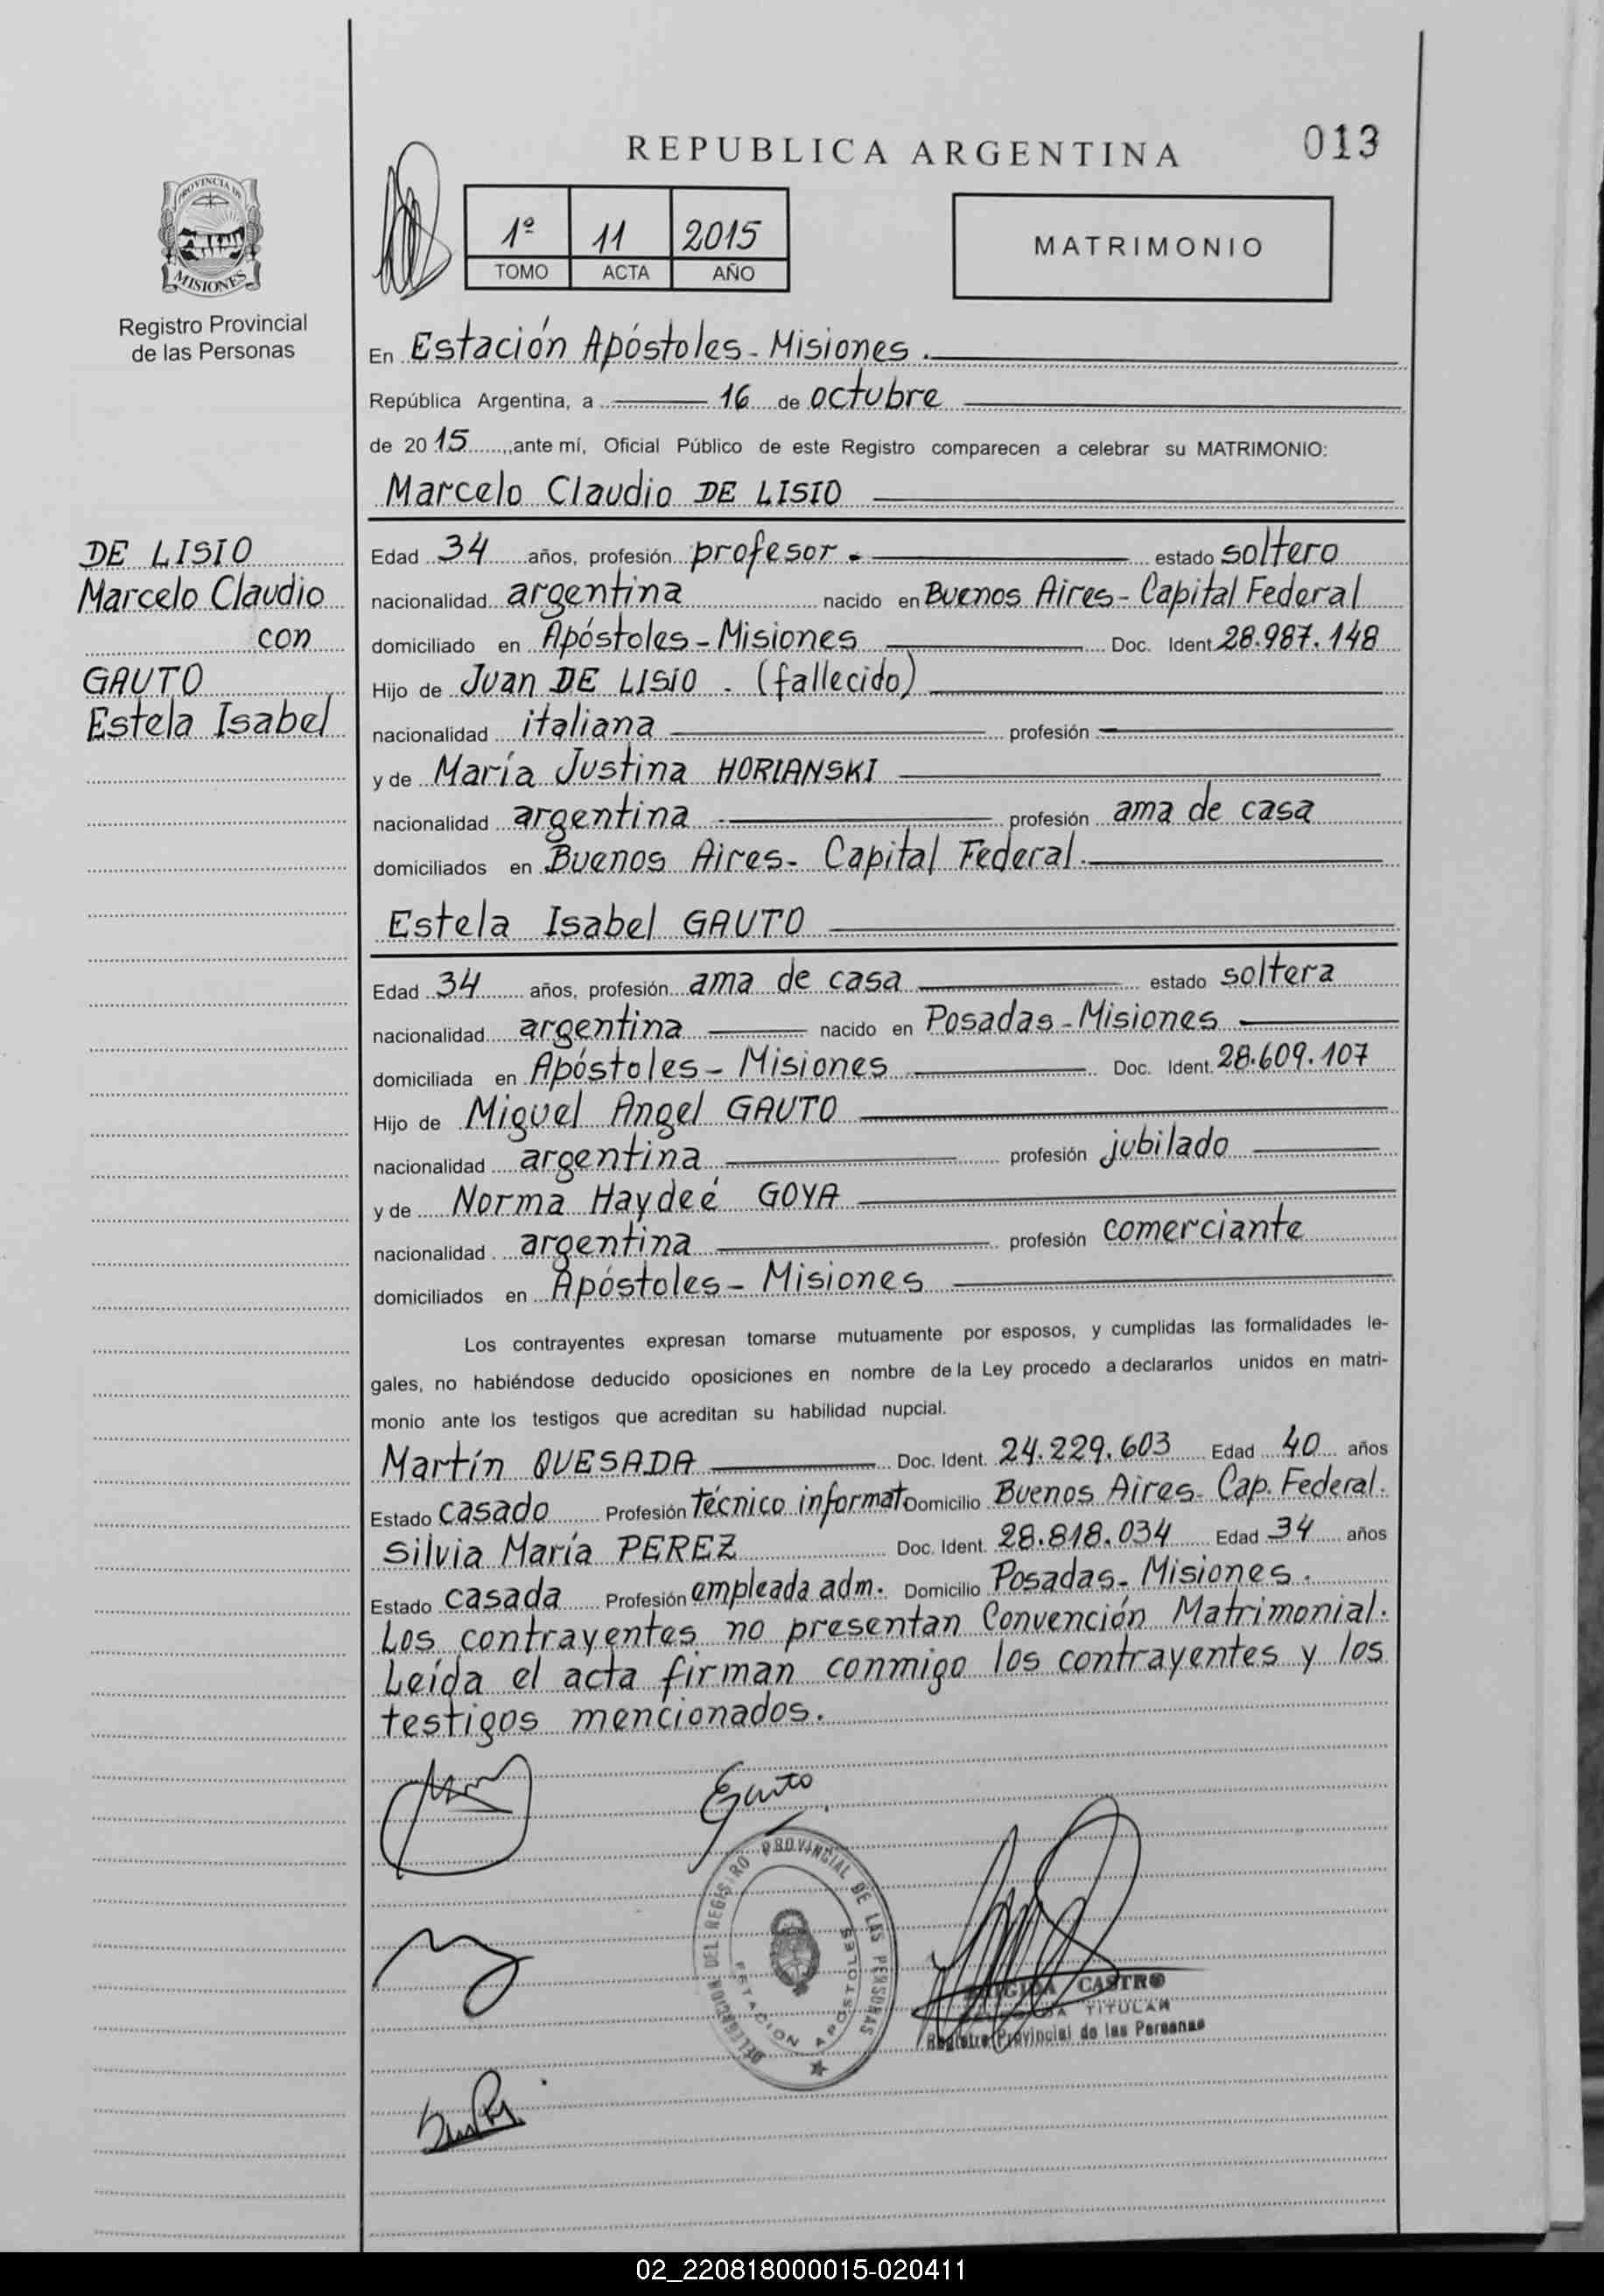 REPUBLICA ARGENTINA
013
PROVINCIA DE
MISIONES
Registro Provincial
de las Personas
1º 11 2015
TOMO ACTA AÑO
MATRIMONIO
En Estación Apóstoles - Misiones.
República Argentina, a 16 de octubre
de 2015, ante mí, Oficial Público de este Registro comparecen a celebrar su MATRIMONIO:
Marcelo Claudio DE LISIO
DE LISIO
Marcelo Claudio
con
GAUTO
Estela Isabel
Edad 34 años, profesión profesor. estado soltero
nacionalidad argentina nacido en Buenos Aires - Capital Federal
domiciliado en Apóstoles - Misiones Doc. Ident. 28.987.148
Hijo de Juan DE LISIO. (fallecido)
nacionalidad italiana profesión
y de María Justina HORIANSKI
nacionalidad argentina profesión ama de casa
domiciliados en Buenos Aires - Capital Federal.
Estela Isabel GAUTO
Edad 34 años, profesión ama de casa estado soltera
nacionalidad argentina nacido en Posadas - Misiones
domiciliada en Apóstoles - Misiones Doc. Ident. 28.609.107
Hijo de Miguel Angel GAUTO
nacionalidad argentina profesión jubilado
y de Norma Haydeé GOYA
nacionalidad argentina profesión comerciante
domiciliados en Apóstoles - Misiones
Los contrayentes expresan tomarse mutuamente por esposos, y cumplidas las formalidades le-
gales, no habiéndose deducido oposiciones en nombre de la Ley procedo a declararlos unidos en matri-
monio ante los testigos que acreditan su habilidad nupcial.
Martín QUESADA Doc. Ident. 24.229.603 Edad 40 años
Estado casado Profesión técnico informat. Domicilio Buenos Aires - Cap. Federal.
Silvia María PEREZ Doc. Ident. 28.818.034 Edad 34 años
Estado casada Profesión empleada adm. Domicilio Posadas - Misiones.
Los contrayentes no presentan Convención Matrimonial.
Leída el acta firman conmigo los contrayentes y los
testigos mencionados.
Gauto
DELEGACION DEL REGISTRO PROVINCIAL DE LAS PERSONAS
ESTACION APOSTOLES
CASTRO
TITULAR
Registro Provincial de las Personas
02_220818000015-020411